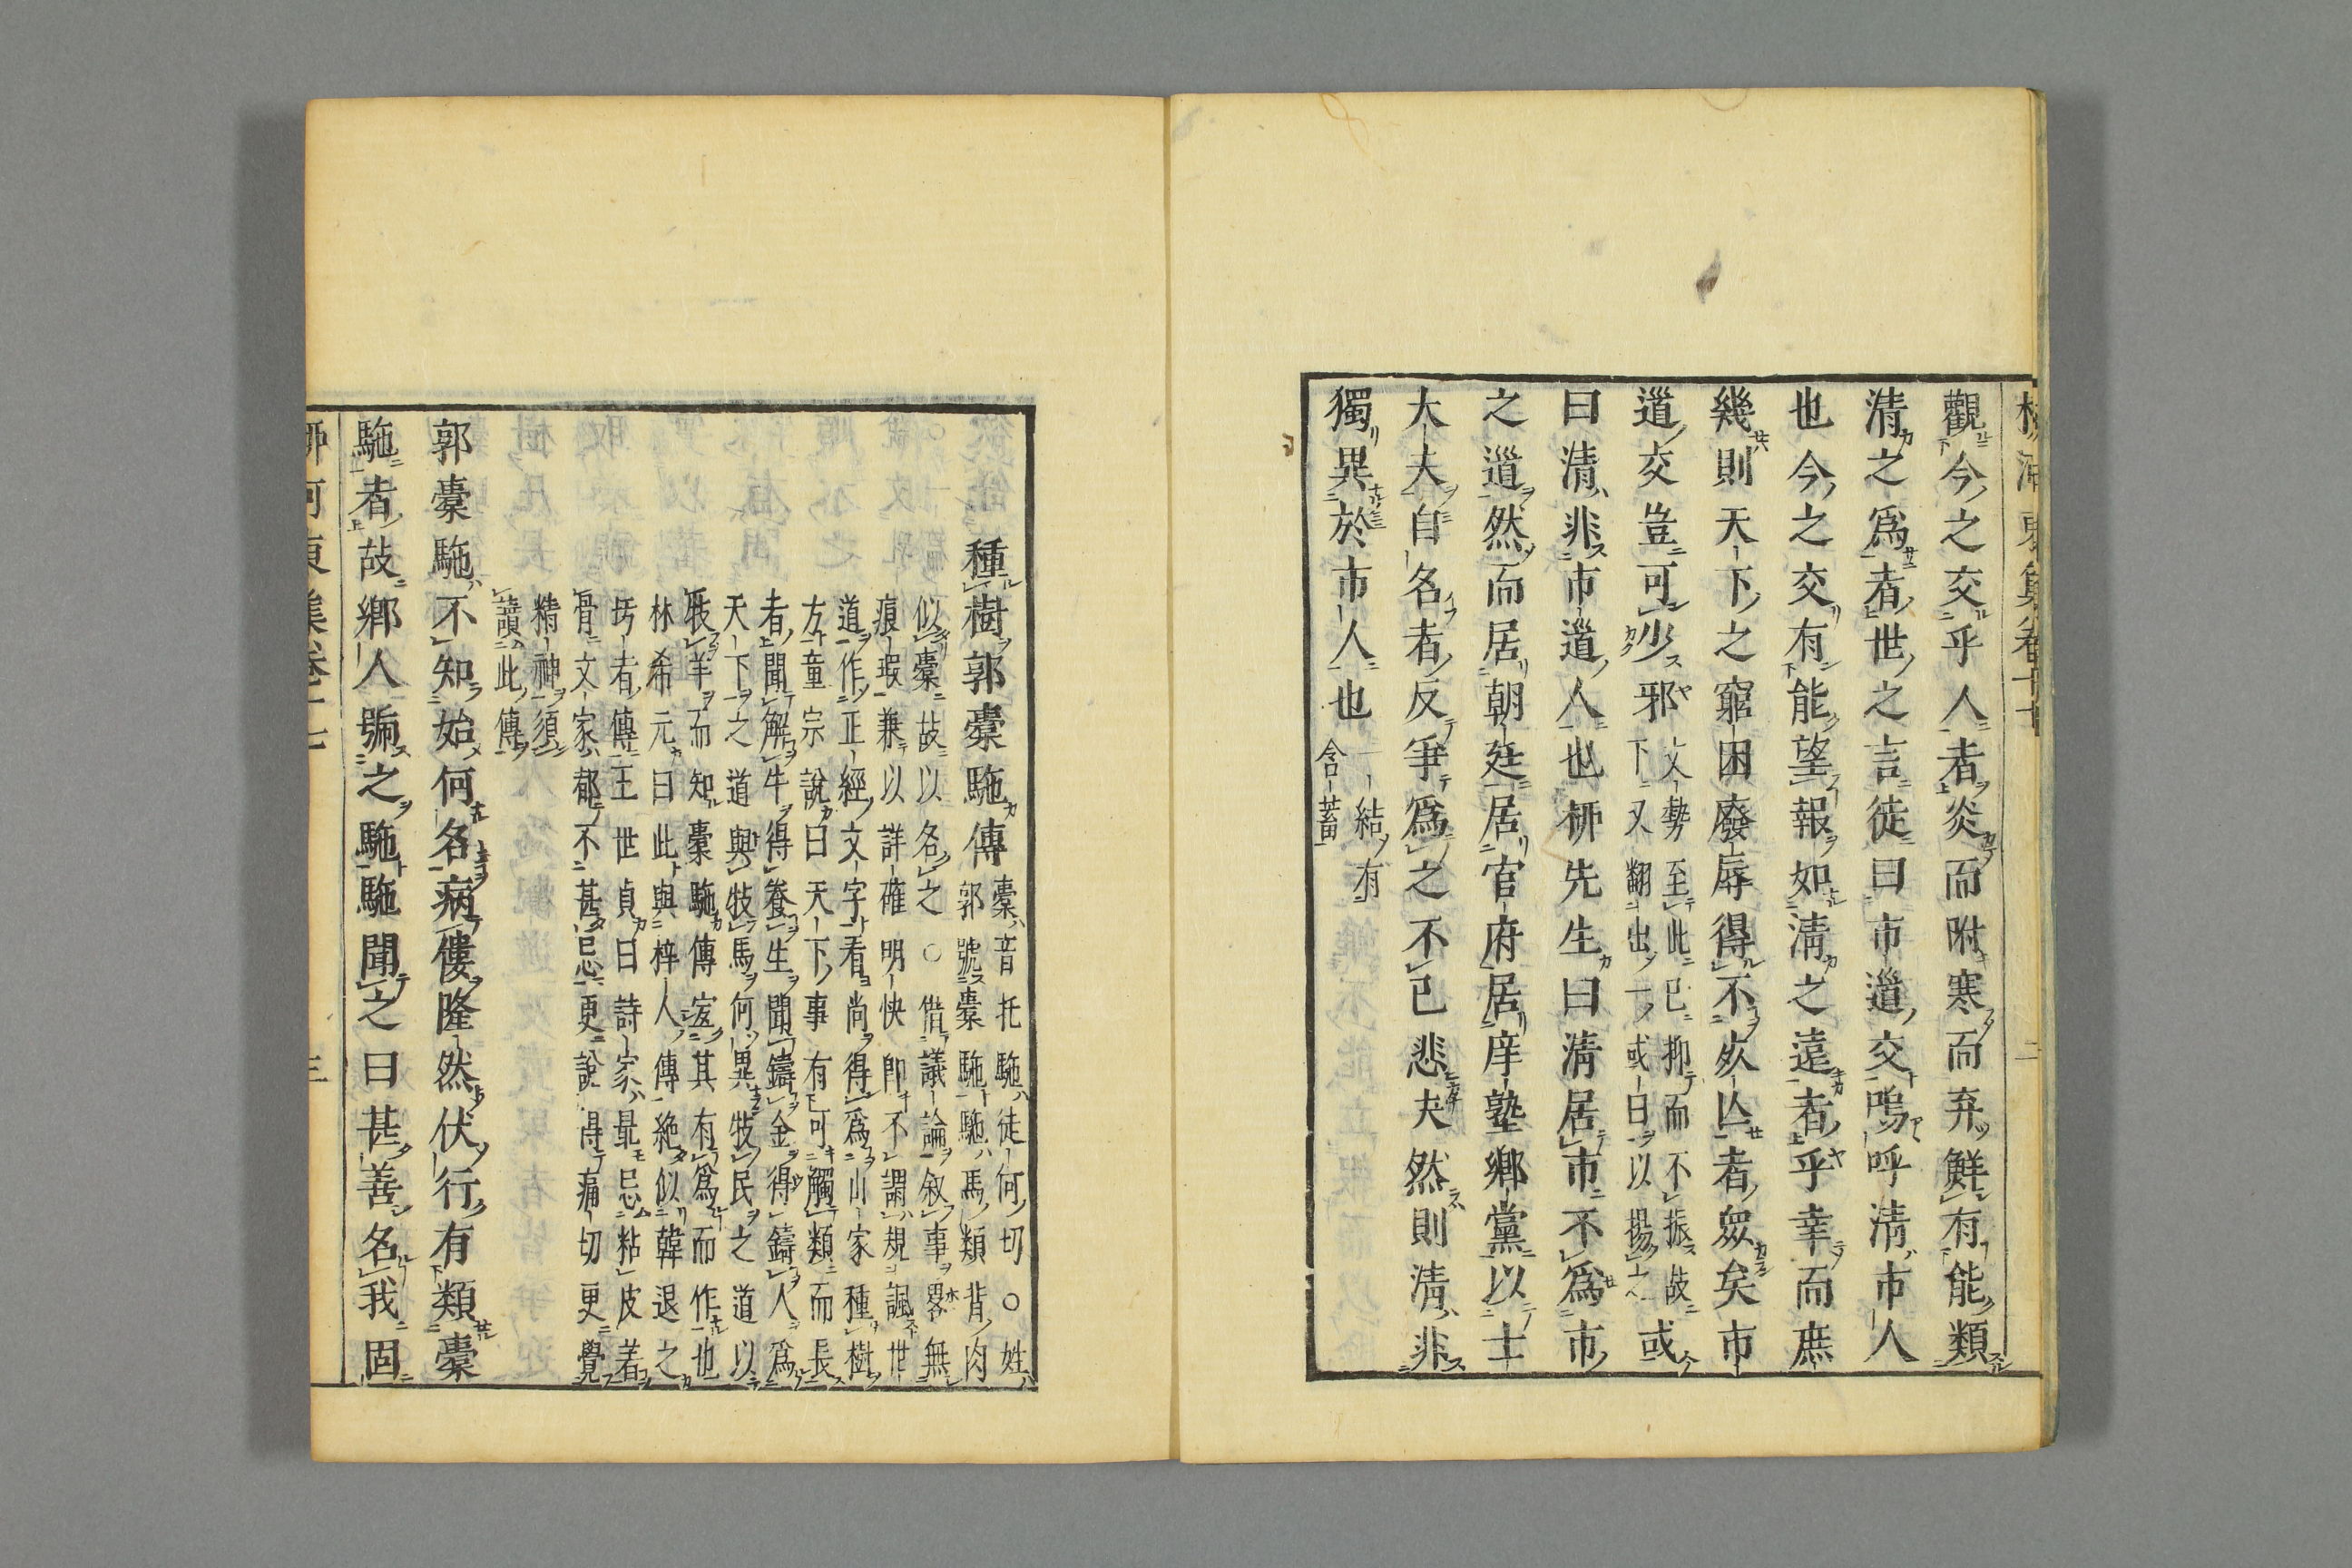 觀今之交乎人者炎而附寒而弃鮮有能類
清之爲者世之言徒曰市道交嗚呼清市人
也今之交有能望報如清之遠者乎幸而庶
幾則天下之窮困廢辱得不死亾者眾矣市
道交豈可少邪文勢至此已抑而不振故
下又翻出一或曰以揚之或
曰清非市道人也柳先生曰清居市不爲市
之道然而居朝廷居官府居庠塾鄉黨以士
大夫自名者反爭爲之不已悲夫然則清非
獨異於市人也一結有
含蓄
種樹郭橐駞傳橐音托駞徒何切○姓
郭號橐駞駞馬類背肉
似橐故以名之○借議論敘事畧無
痕瑕兼以詳確明快即不謂規諷世
道作正經文字看尚得爲山家種樹
方童宗說曰天下事有可觸類而長
者聞解牛得養生聞鑄金得鑄人爲
天下之道與牧馬何異牧民之道以
牧羊而知橐駞傳寔其有爲而作也
林希元曰此與梓人傳絶似韓退之
圬者傳王世貞曰詩家最忌粘皮着
骨文家都不甚忌更說得痛切更覺
精神須
讀此傳
郭橐駞不知始何名病僂隆然伏行有類橐
駞者故鄉人號之駞駞聞之曰甚善名我固
柳河東集卷十七 三